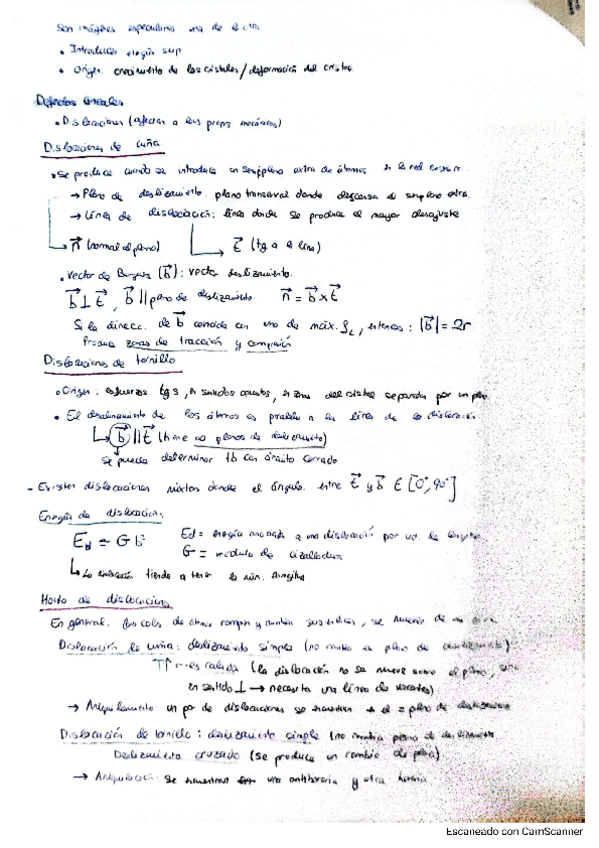 Son imágenes especulares una de la otra
• Introducen energía sup
• Origen: crecimiento de los cristales/deformación del cristal
Defectos lineales
• Dislocaciones (afectan a las props. mecánicas)
Dislocaciones de cuña
• Se produce cuando se introduce un semiplano extra de átomos en la red
→ Plano de deslizamiento: plano transversal donde descansa el semiplano extra
→ Línea de dislocación: línea donde se produce el mayor desajuste
n (normal al plano) t (tg a la línea)
• Vector de Burgers (b): vector deslizamiento.
b ⊥ t, b // plano de deslizamiento n = b x t
Si la direcc. de b coincide con uno de máx. ρL, entonces: |b| = 2r
Produce zonas de tracción y compresión
Dislocaciones de tornillo
• Origen: esfuerzos tgs, en sentidos opuestos, en zona del cristal separada por un plano
• El desalineamiento de los átomos es paralelo a la línea de la dislocación
b // t (tiene ∞ planos de deslizamiento)
Se puede determinar tb con circuito cerrado
- Existen dislocaciones mixtas donde el ángulo entre t y b ∈ [0°, 90°]
Energía de dislocación:
Ed ≃ G b² Ed = energía asociada a una dislocación por ud. de longitud
G = módulo de cizalladura
La dislocación tiende a tener la mín. longitud
de dislocaciones
En general: de átomos rompen y cambian sus enlaces, se mueven de
Dislocación de cuña: deslizamiento simple (no cambia el plano de deslizamiento)
escalada (la dislocación no se mueve sobre el plano, sino
en sentido ⊥ → necesita una línea de vacantes)
→ Aniquilamiento: un par de dislocaciones se encuentran en el = plano de deslizamiento
Dislocación de tornillo: deslizamiento simple (no cambia plano de deslizamiento
Deslizamiento cruzado (se produce un cambio de plano).
→ Aniquilación: se encuentran una antihoraria y otra horaria
Escaneado con CamScanner